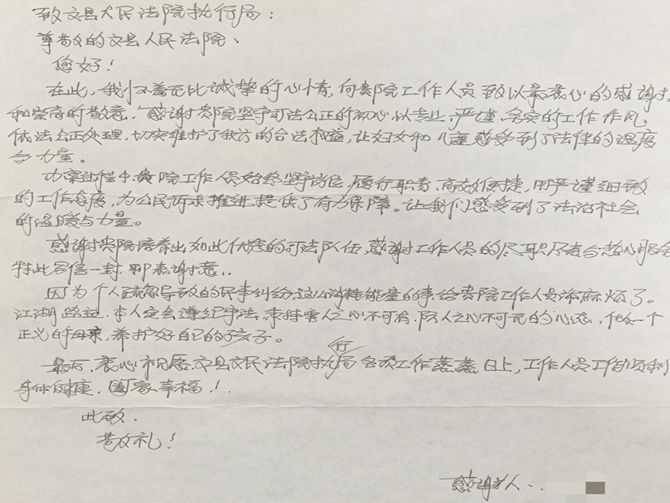 致文县人民法院执行局:
尊敬的文县人民法院、
您好!
在此,我怀着无比诚挚的心情,向贵院工作人员致以最衷心的感谢
和崇高的敬意,感谢贵院坚守司法公正的初心,以专业、严谨、务实的工作作风
依法公正处理,切实维护了我方的合法权益,让妇女和儿童感受到了法律的温度
与力量。
办案过程中贵院工作人员始终坚守岗位,履行职责,高效便捷,用严谨细致
的工作态度,为公民诉求推进提供了有力保障。让我们感受到了法治社会
的温暖与力量。
感谢贵院培养出如此优秀的司法队伍,感谢工作人员的尽职尽责
特此写信一封聊表谢意..
因为个人疏忽导致的民事纠纷,这么消耗能量的事,给贵院工作人员添麻烦了。
江湖路远,本人定会遵纪守法,秉持害人之心不可有,防人之心不可无的心态,做一个
正义的母亲,养护好自己的孩子。
最后,衷心祝愿文县人民法院执行局各项工作蒸蒸日上,工作人员工作顺利
身体健康,阖家幸福!
此致
敬礼!
感谢人: